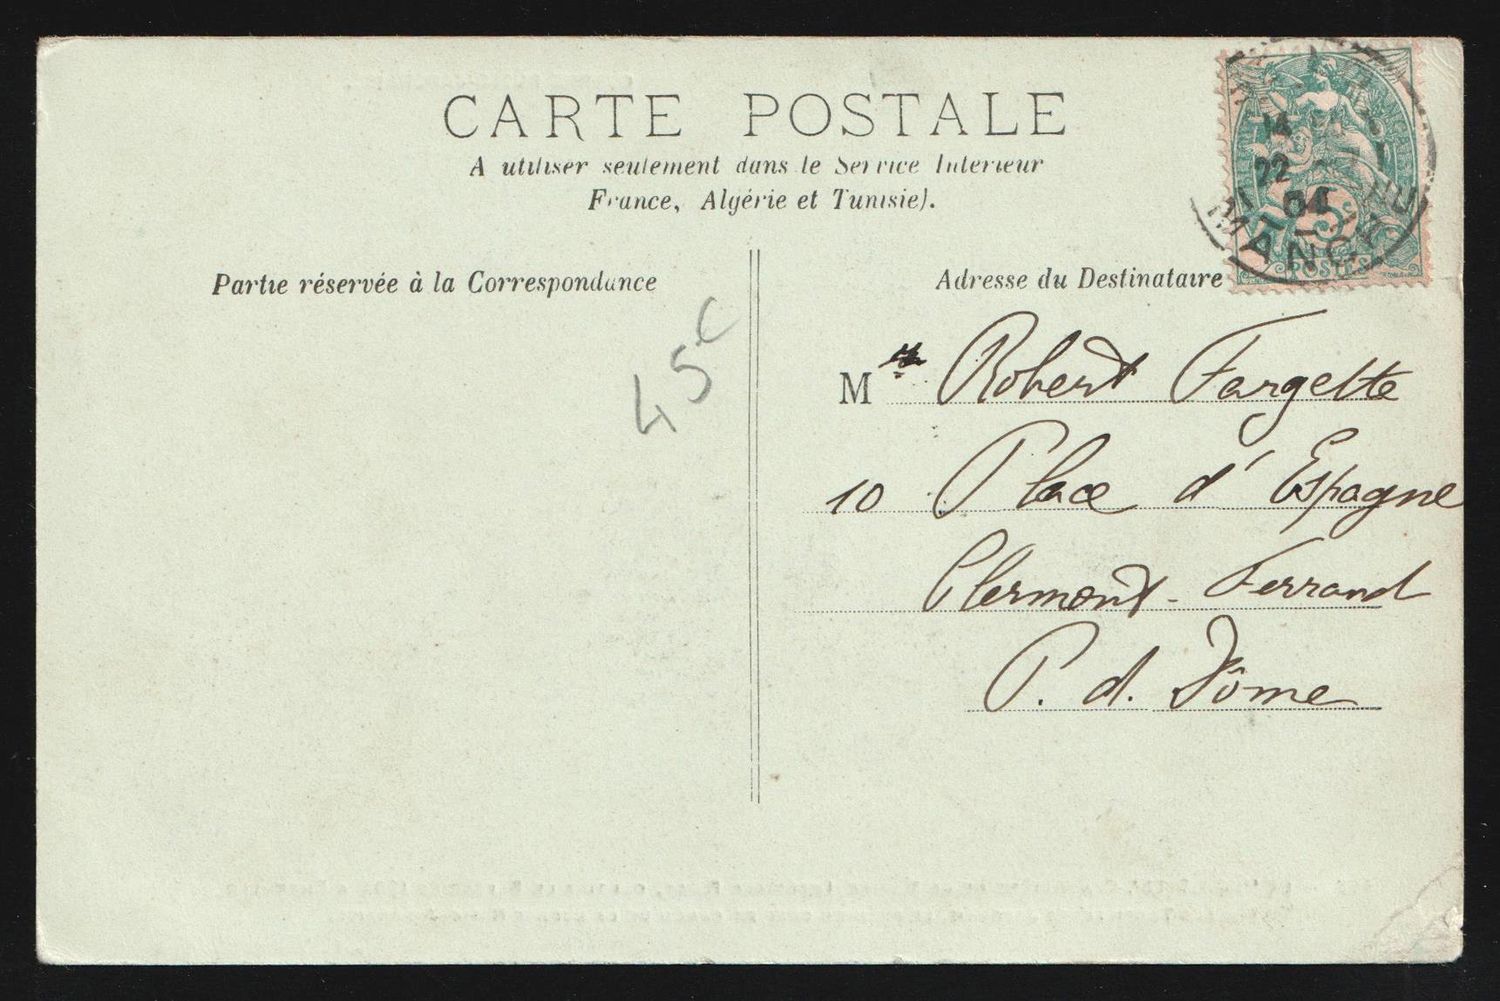 CARTE POSTALE
A utiliser seulement dans le Service Interieur
France, Algérie et Tunisie).
Partie réservée à la Correspondance
Adresse du Destinataire
45 c
M Robert Fargette
10 Place d'Espagne
Clermont-Ferrand
P. d. Dôme
22
04
MANCHE
5c
POSTES